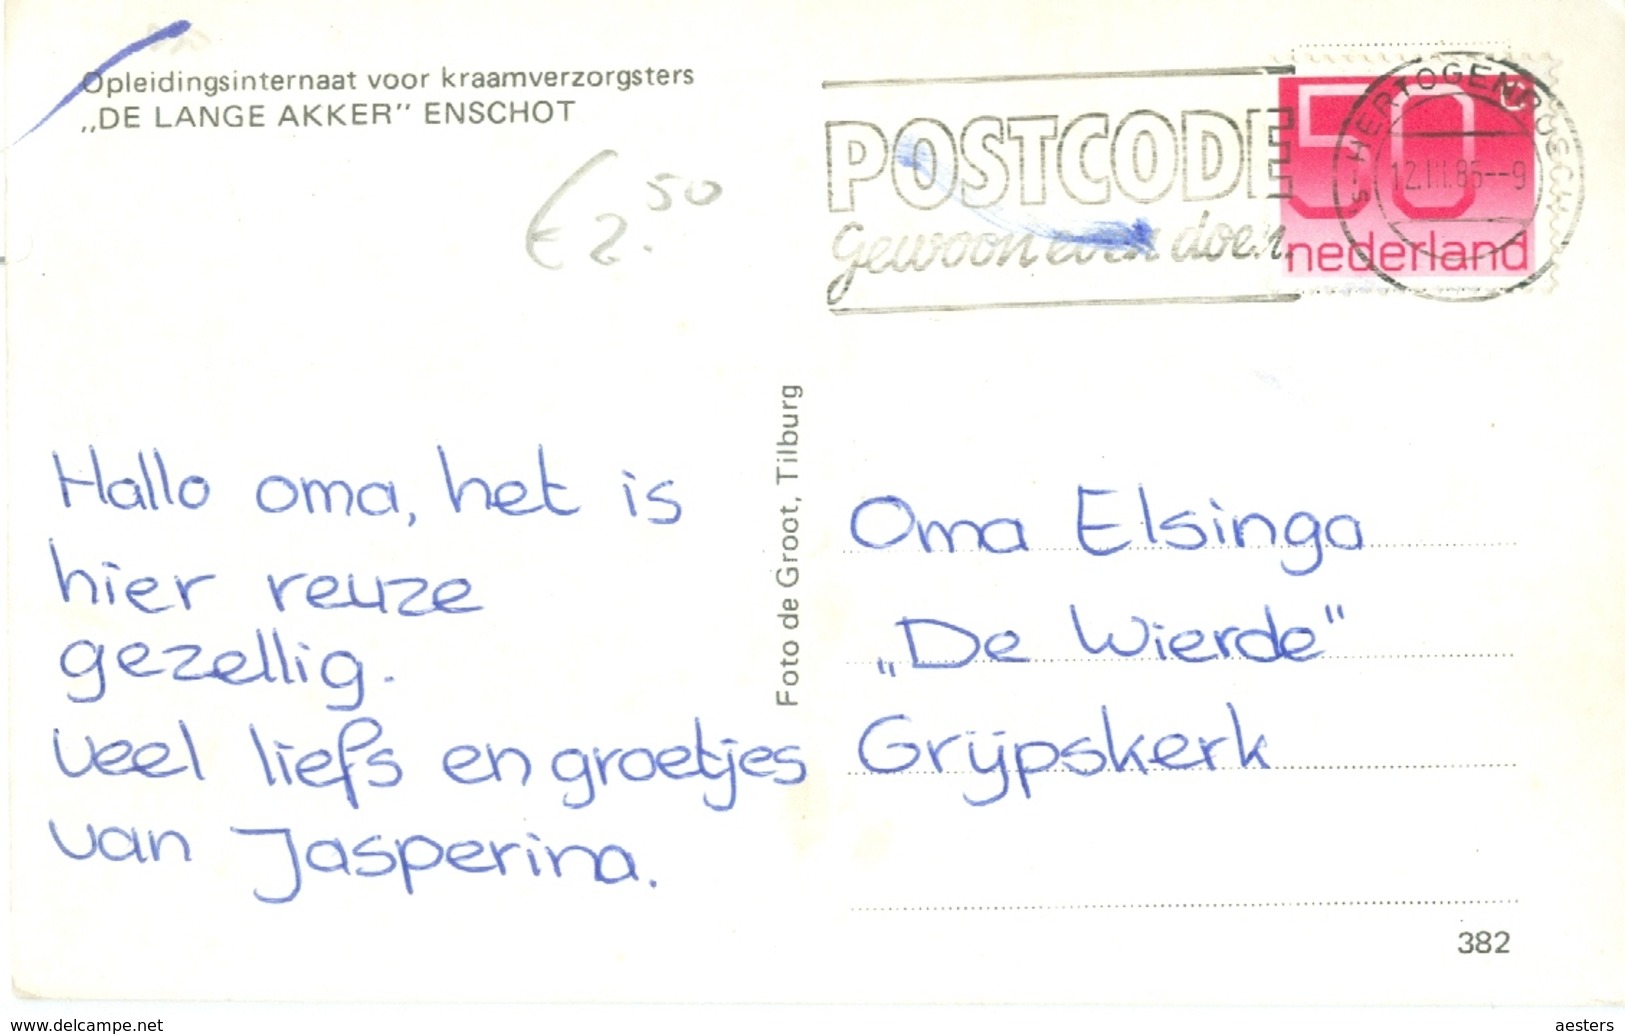 Opleidingsinternaat voor kraamverzorgsters
„DE LANGE AKKER” ENSCHOT
€ 2.50
POSTCODE
gewoon even doen.
50
nederland
's-HERTOGENBOSCH
12.III.86--9
Hallo oma, het is
hier reuze
gezellig.
veel liefs en groetjes
van Jasperina.
Foto de Groot, Tilburg
Oma Elsinga
„De Wierde”
Grijpskerk
382
www.delcampe.net
aesters